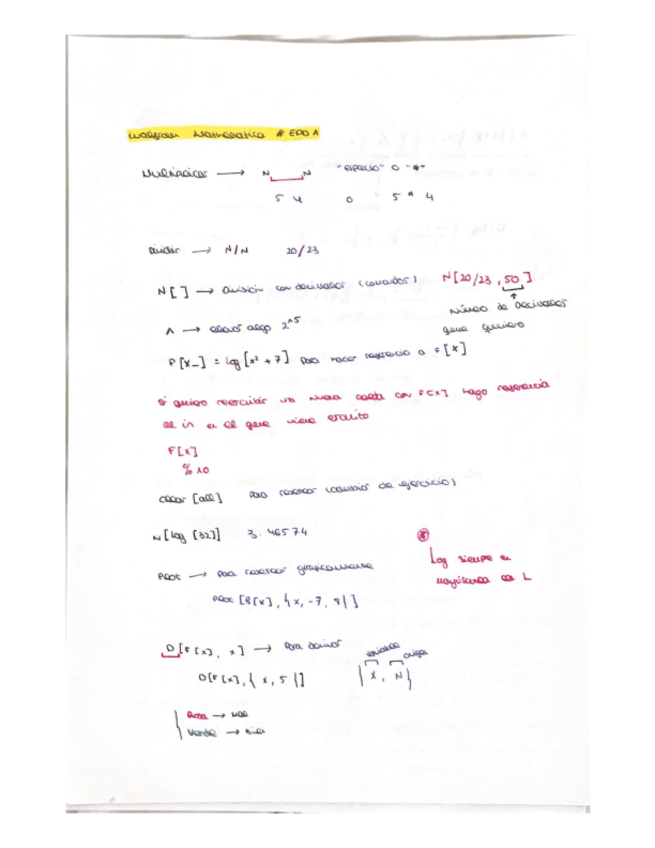 Wolfram Mathematica # EPD 1
Multiplicar → N N "espacio" o "*"
5 4 o 5 * 4
Dividir → N/N 20/23
N[ ] → División con decimales N[20/23, 50]
↑
Número de decimales
que quiero
^ → elevar algo 2^5
F[x_] = Log[x² + 7] para hacer referencia a F[x]
Si quiero reescribir un nueva con F[x] hago referencia
al in en el que viene escrito
F[x]
% 10
Clear [all] para resetear de ejercicio)
N[Log [32]] 3.46574
Log siempre en
mayúscula L
Plot → para graficamente
Plot [B[x], {x, -7, 8}]
D[F[x], x] → Para derivar
variable
D[F[x], {x, 5}] {x, N}
Rosa → Mal
Verde → Bien